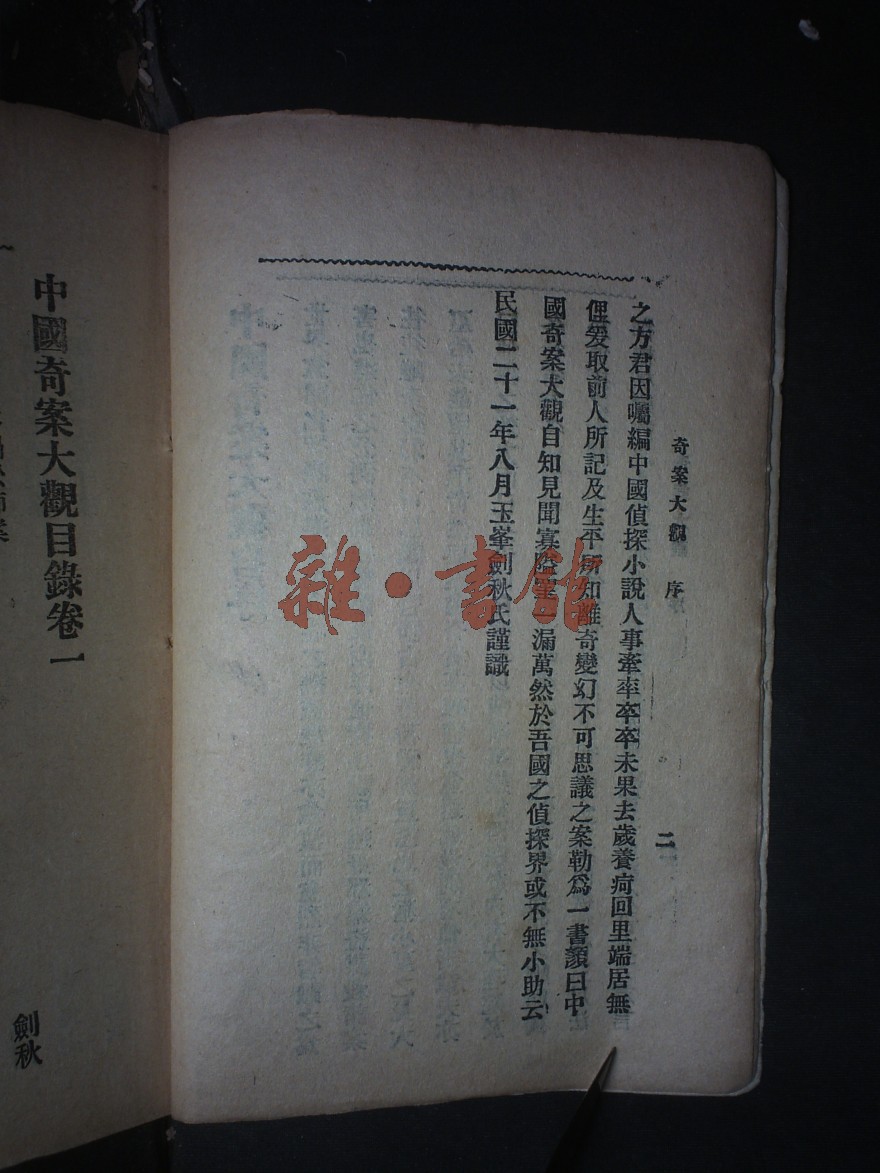 奇案大觀 序 二
之方君因囑編中國偵探小說人事牽率卒卒未果去歲養疴回里端居無
俚爰取前人所記及生平所知離奇變幻不可思議之案勒爲一書顏曰中
國奇案大觀自知見聞寡陋罣一漏萬然於吾國之偵探界或不無小助云
民國二十一年八月玉峯劍秋氏謹識
中國奇案大觀目錄卷一
劍秋
雜·書館